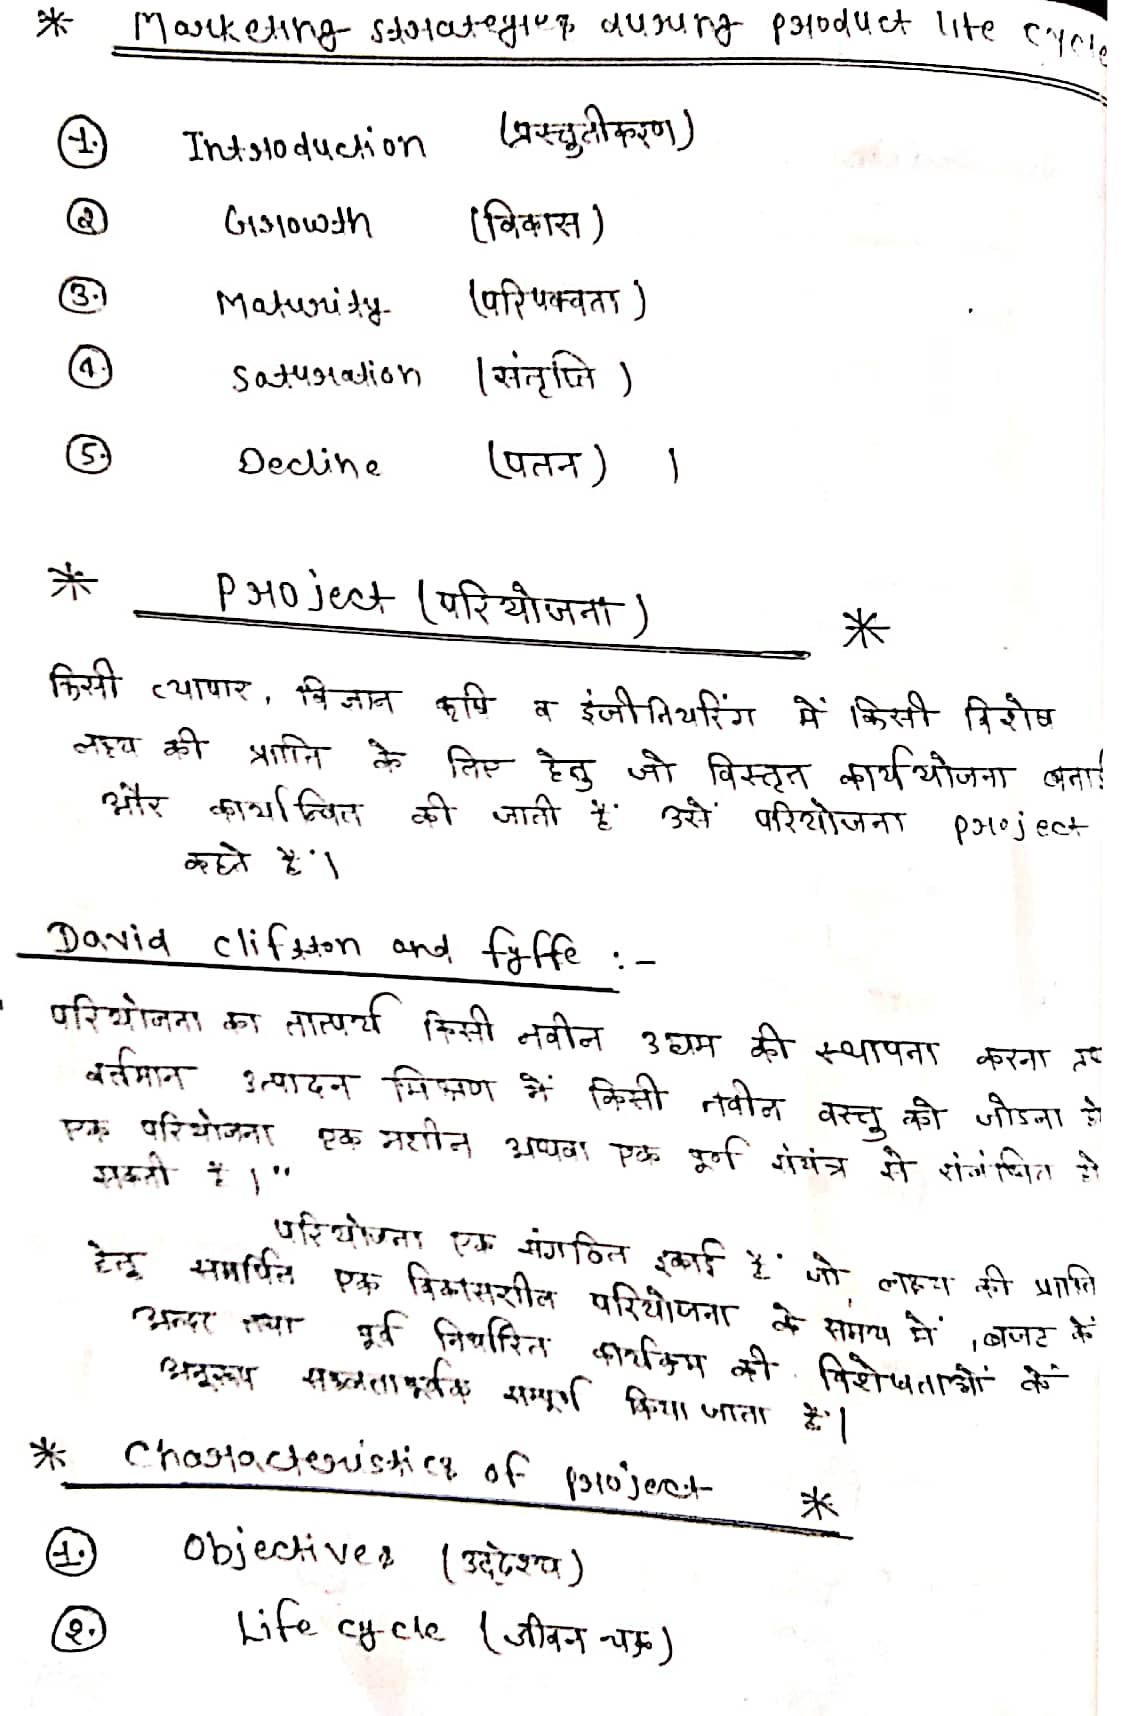 * Marketing strategies during product life cycle
1. Introduction (प्रस्तुतीकरण)
2 Growth (विकास)
3. Maturity (परिपक्वता)
4. Saturation (संतृप्ति)
5. Decline (पतन) ।
* Project (परियोजना) *
किसी व्यापार, विज्ञान कृषि व इंजीनियरिंग में किसी विशेष
लक्ष्य की प्राप्ति के लिए हेतु जो विस्तृत कार्ययोजना बनाई
और कार्यान्वित की जाती हैं उसें परियोजना project
कहते हैं।
David cliffton and fyffe :-
परियोजना का तात्पर्य किसी नवीन उद्यम की स्थापना करना
वर्तमान उत्पादन मिश्रण में किसी नवीन वस्तु को जोडना है
एक परियोजना एक मशीन अथवा एक पूर्ण संयंत्र से संबंधित हो
सकती है ।"
परियोजना एक संगठित इकाई हैं जो, लक्ष्य की प्राप्ति
हेतु समर्पित एक विकासशील परियोजना के समय में, बजट के
अन्दर तथा पूर्व निर्धारित कार्यक्रम की विशेषताओं के
अनुरूप सफलतापूर्वक सम्पूर्ण किया जाता हैं।
* Characteristics of project *
1. Objectives (उद्देश्य)
2. Life cycle (जीवन चक्र)